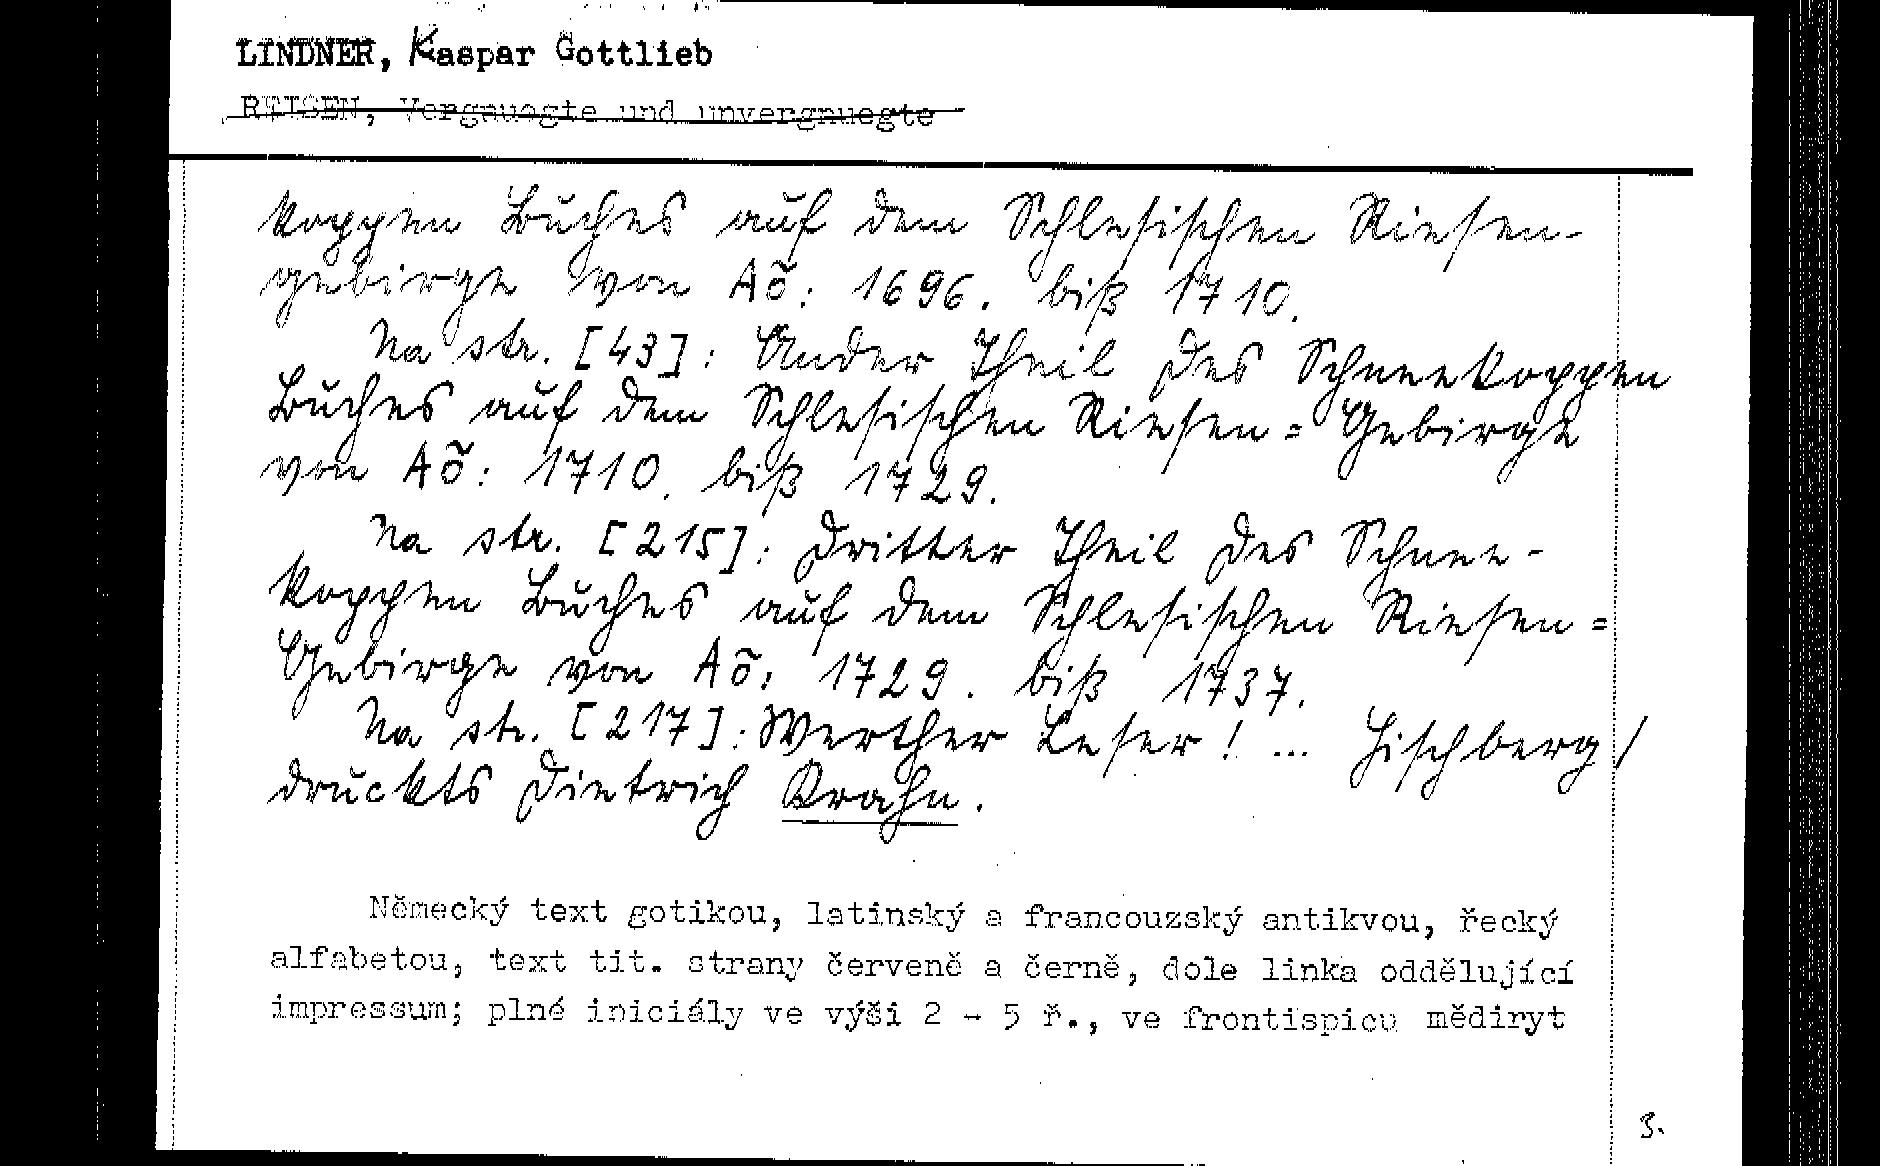 LINDNER, Kaspar Gottlieb
REISEN, Vergnuegte und unvergnuegte
koppen Buches auf dem Schlesischen Riesen-
gebirge von Aõ: 1696. biß 1710.
Na str. [43]: Ander Theil des Schneekoppen
Buches auf dem Schlesischen Riesen=Gebirge
von Aõ: 1710. biß 1729.
Na str. [215]: Dritter Theil des Schnee-
koppen Buches auf dem Schlesischen Riesen=
Gebirge von Aõ: 1729. biß 1737.
Na str. [217]: Werther Leser! ... Hischberg/
druckts Dietrich Krahn.
Německý text gotikou, latinský a francouzský antikvou, řecký
alfabetou, text tit. strany červeně a černě, dole linka oddělující
impressum; plné iniciály ve výši 2 - 5 ř., ve frontispicu mědiryt
3.